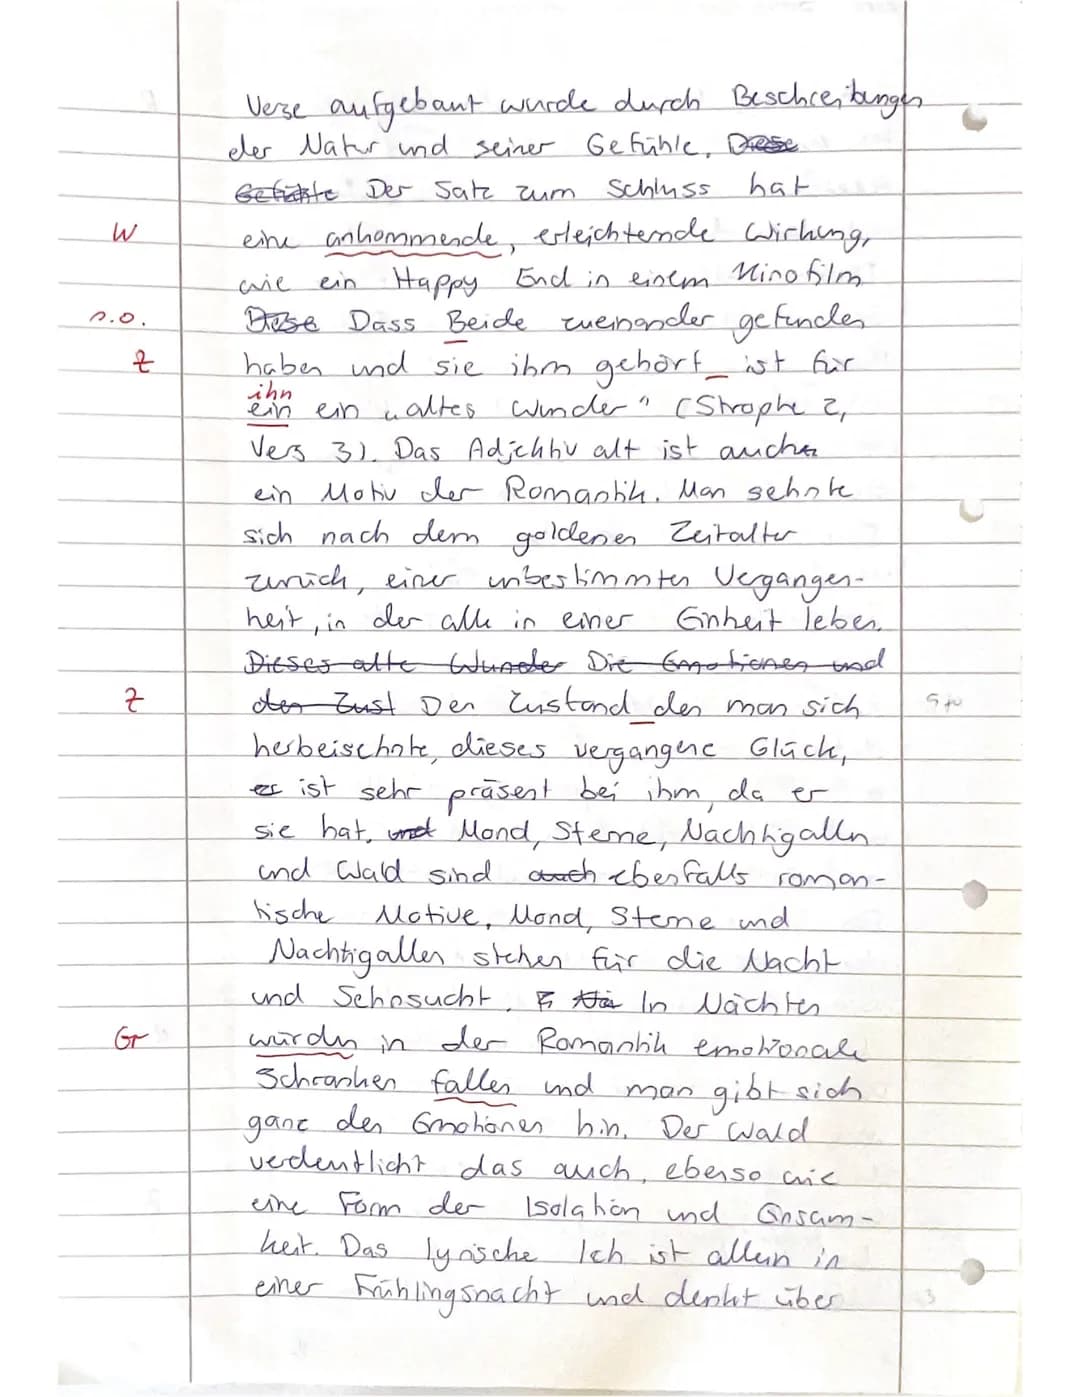 Verse aufgebaut wurde durch Beschreibungen
der Natur und seiner Gefühle. Diese
Gefühle Der Satz zum Schluss hat
W eine ankommende, erleichternde Wirkung,
wie ein Happy End in einem Kinofilm
s.o. Diese Dass Beide zueinander gefunden
Z haben und sie ihm gehört ist für
ihn
ein ein "altes Wunder" (Strophe 2,
Vers 3). Das Adjektiv alt ist auch
ein Motiv der Romantik. Man sehnte
sich nach dem goldenen Zeitalter
zurück, einer unbestimmten Vergangen-
heit, in der alle in einer Einheit leben.
Dieses alte Wunder Die Emotionen und
Z den Zust Den Zustand den man sich
herbeisehnte, dieses vergangene Glück,
es ist sehr präsent bei ihm, da er
sie hat. und Mond, Sterne, Nachtigalln
und Wald sind auch ebenfalls roman-
tische Motive. Mond, Sterne und
Nachtigallen stehen für die Nacht
und Sehnsucht. In Nächten
Gr würden in der Romantik emotionale
Schranken fallen und man gibt sich
ganz den Emotionen hin. Der Wald
verdeutlicht das auch, ebenso wie
eine Form der Isolation und Einsam-
keit. Das lyrische Ich ist allein in
einer Frühlingsnacht und denkt über